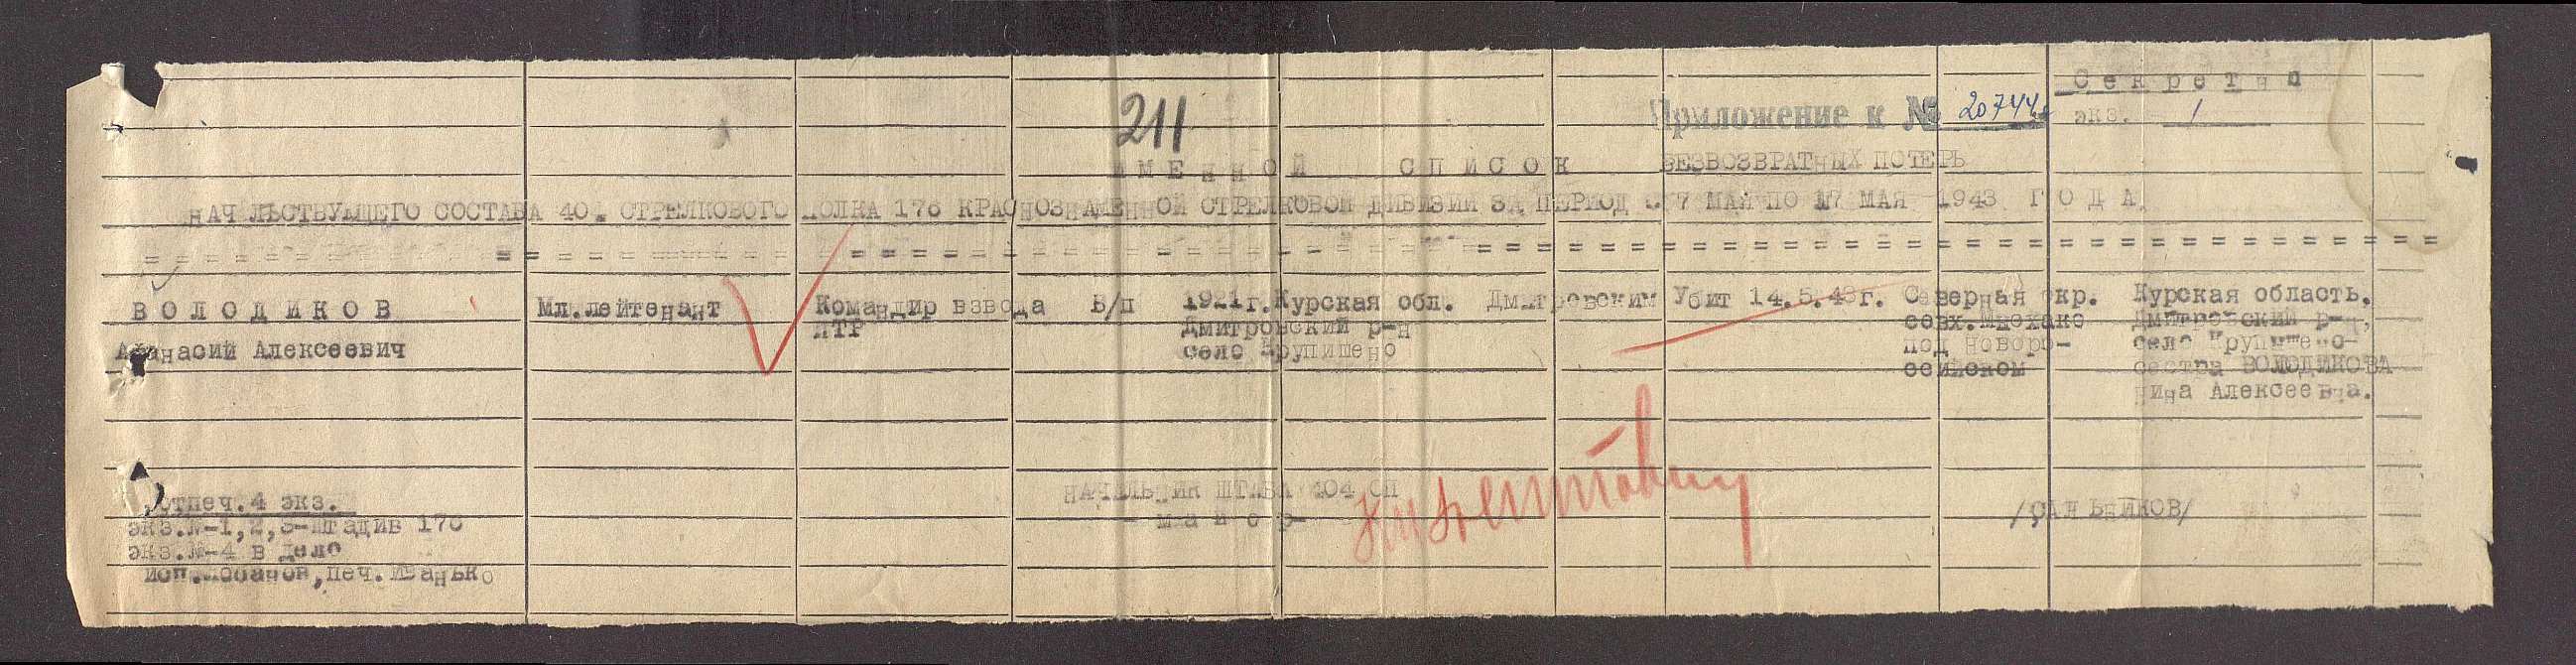 Секретно
211
Приложение к № 20744
экз. 1
ИМЕННОЙ СПИСОК БЕЗВОЗВРАТНЫХ ПОТЕРЬ
НАЧАЛЬСТВУЮЩЕГО СОСТАВА 404 СТРЕЛКОВОГО ПОЛКА 176 КРАСНОЗНАМЕННОЙ СТРЕЛКОВОЙ ДИВИЗИИ ЗА ПЕРИОД С 7 МАЯ ПО 17 МАЯ 1943 ГОДА.
ВОЛОДИКОВ
Афанасий Алексеевич
Мл.лейтенант
Командир взвода
ПТР
Б/п
1921г.Курская обл.
Дмитровский р-н
село Крупишено
Дмитровским
Убит 14.5.43г.
Северная окр.
совх.
под Новоро-
сейском
Курская область.
Дмитровский р-н,
село Крупишено-
сестра ВОЛОДИКОВА
Нина Алексеевна.
НАЧАЛЬНИК ШТАБА 404 СП
- майор-
/САЛЬНИКОВ/
отпеч.4 экз.
экз.№-1,2,3-штадив 176
экз.№-4 в дело
исп.Лобанов,печ.Иванько